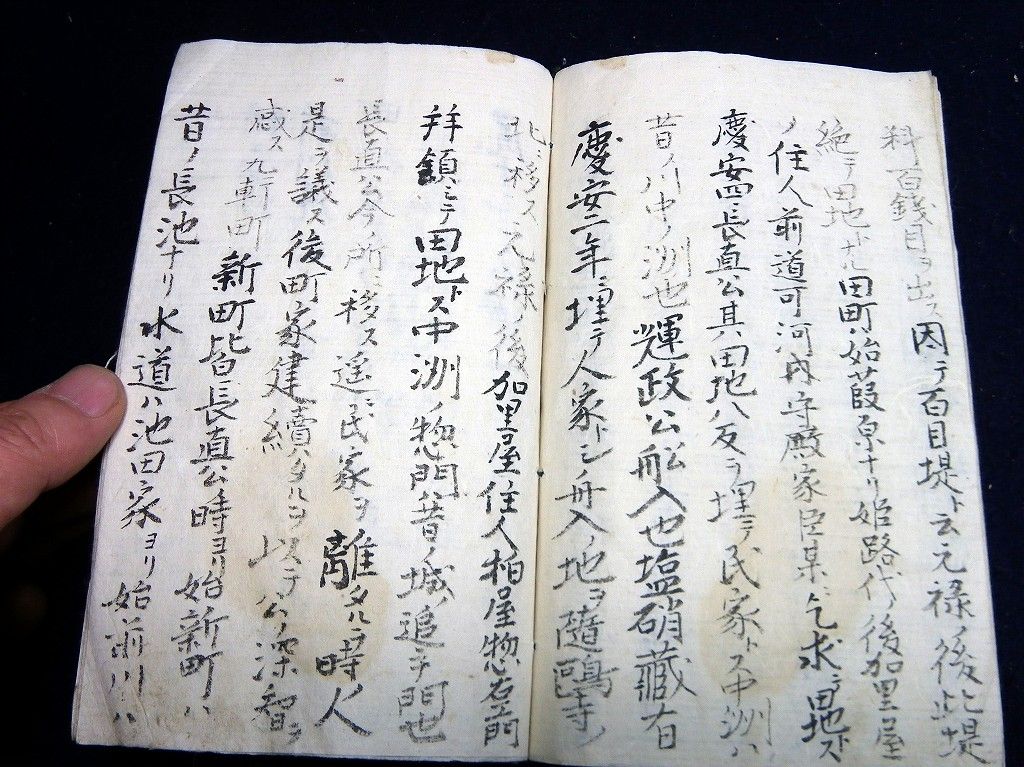 科百錢目ヲ出ス因テ百目堤ト云元禄ノ後此堤
絶テ田地トナル田町始葭原ナリ姫路代ノ後加里屋
ノ住人前道可河守殿家臣某ニ乞求テ田地トス
慶安四長直公其田地八反ヲ埋テ民家トス中洲ハ
昔ノ川中ノ洲也輝政公舩入也塩硝蔵有
慶安二年ニ埋テ人家トシ舟入ノ地ヲ隨鴎寺ノ
北ニ移ス元禄ノ後加里屋住人柏屋惣右衛門
拜領シテ田地トス中洲ノ惣門昔ノ城追手門也
長直公今ノ所ニ移ス遥ニ民家ヲ離タル時人
是ヲ議ス後町家建續タルヲ以テ公ノ深智ヲ
感ス九軒町新町皆長直公時ヨリ始新町ハ
昔ノ長池ナリ水道ハ池田家ヨリ始前川ハ